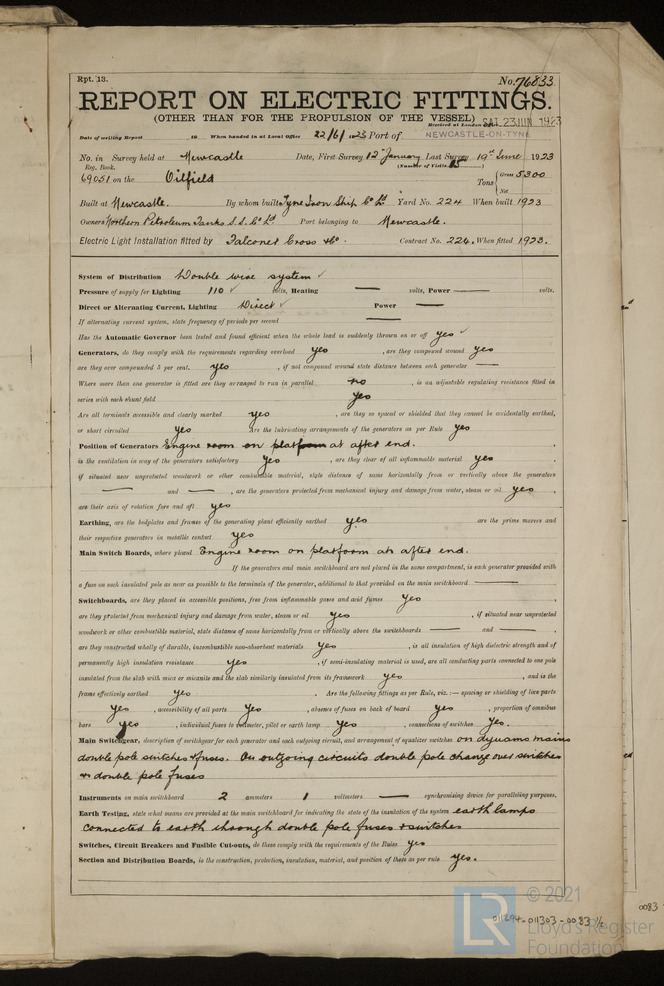 Rpt. 13. No. 76833
REPORT ON ELECTRIC FITTINGS.
(OTHER THAN FOR THE PROPULSION OF THE VESSEL)
Received at London Office SAT. 23 JUN 1923
Date of writing Report 19 When handed in at Local Office 22/6/1923 Port of NEWCASTLE-ON-TYNE
No. in Survey held at Newcastle Date, First Survey 12th January Last Survey 19th June 1923
Reg. Book. (Number of Visits 85)
69051 on the Oilfield Tons Gross 5300
Net
Built at Newcastle. By whom built Tyne Iron Ship Co Ld Yard No. 224 When built 1923
Owners Northern Petroleum Tanks S.S. Co Ld Port belonging to Newcastle.
Electric Light Installation fitted by Falconer Cross & Co. Contract No. 224. When fitted 1923.
System of Distribution Double wire system ✓
Pressure of supply for Lighting 110 ✓ volts, Heating — volts, Power — volts.
Direct or Alternating Current, Lighting Direct ✓ Power —
If alternating current system, state frequency of periods per second —
Has the Automatic Governor been tested and found efficient when the whole load is suddenly thrown on or off yes ✓
Generators, do they comply with the requirements regarding overload yes, are they compound wound yes
are they over compounded 5 per cent. yes, if not compound wound state distance between each generator —
Where more than one generator is fitted are they arranged to run in parallel no, is an adjustable regulating resistance fitted in
series with each shunt field yes
Are all terminals accessible and clearly marked yes, are they so spaced or shielded that they cannot be accidentally earthed,
or short circuited yes Are the lubricating arrangements of the generators as per Rule yes
Position of Generators Engine room on platform at after end.
is the ventilation in way of the generators satisfactory yes, are they clear of all inflammable material yes,
if situated near unprotected woodwork or other combustible material, state distance of same horizontally from or vertically above the generators
— and —, are the generators protected from mechanical injury and damage from water, steam or oil yes,
are their axis of rotation fore and aft yes
Earthing, are the bedplates and frames of the generating plant efficiently earthed yes are the prime movers and
their respective generators in metallic contact yes
Main Switch Boards, where placed Engine room on platform at after end.
If the generators and main switchboard are not placed in the same compartment, is each generator provided with
a fuse on each insulated pole as near as possible to the terminals of the generator, additional to that provided on the main switchboard —
Switchboards, are they placed in accessible positions, free from inflammable gases and acid fumes yes,
are they protected from mechanical injury and damage from water, steam or oil yes, if situated near unprotected
woodwork or other combustible material, state distance of same horizontally from or vertically above the switchboards — and —,
are they constructed wholly of durable, incombustible non-absorbent materials yes, is all insulation of high dielectric strength and of
permanently high insulation resistance yes, if semi-insulating material is used, are all conducting parts connected to one pole
insulated from the slab with mica or micanite and the slab similarly insulated from its framework yes, and is the
frame effectively earthed yes. Are the following fittings as per Rule, viz.:— spacing or shielding of live parts
yes, accessibility of all parts yes, absence of fuses on back of board yes, proportion of omnibus
bars yes, individual fuses to voltmeter, pilot or earth lamp yes, connections of switches yes.
Main Switchgear, description of switchgear for each generator and each outgoing circuit, and arrangement of equalizer switches on dynamo mains
double pole switches & fuses. On outgoing circuits double pole change over switches
& double pole fuses
Instruments on main switchboard 2 ammeters 1 voltmeters — synchronising device for paralleling purposes.
Earth Testing, state what means are provided at the main switchboard for indicating the state of the insulation of the system earth lamps
connected to earth through double pole fuses & switches
Switches, Circuit Breakers and Fusible Cut-outs, do these comply with the requirements of the Rules yes
Section and Distribution Boards, is the construction, protection, insulation, material, and position of these as per rule yes.
© 2021
LR Lloyd's Register
Foundation
011294-011303-0083 ½
0083